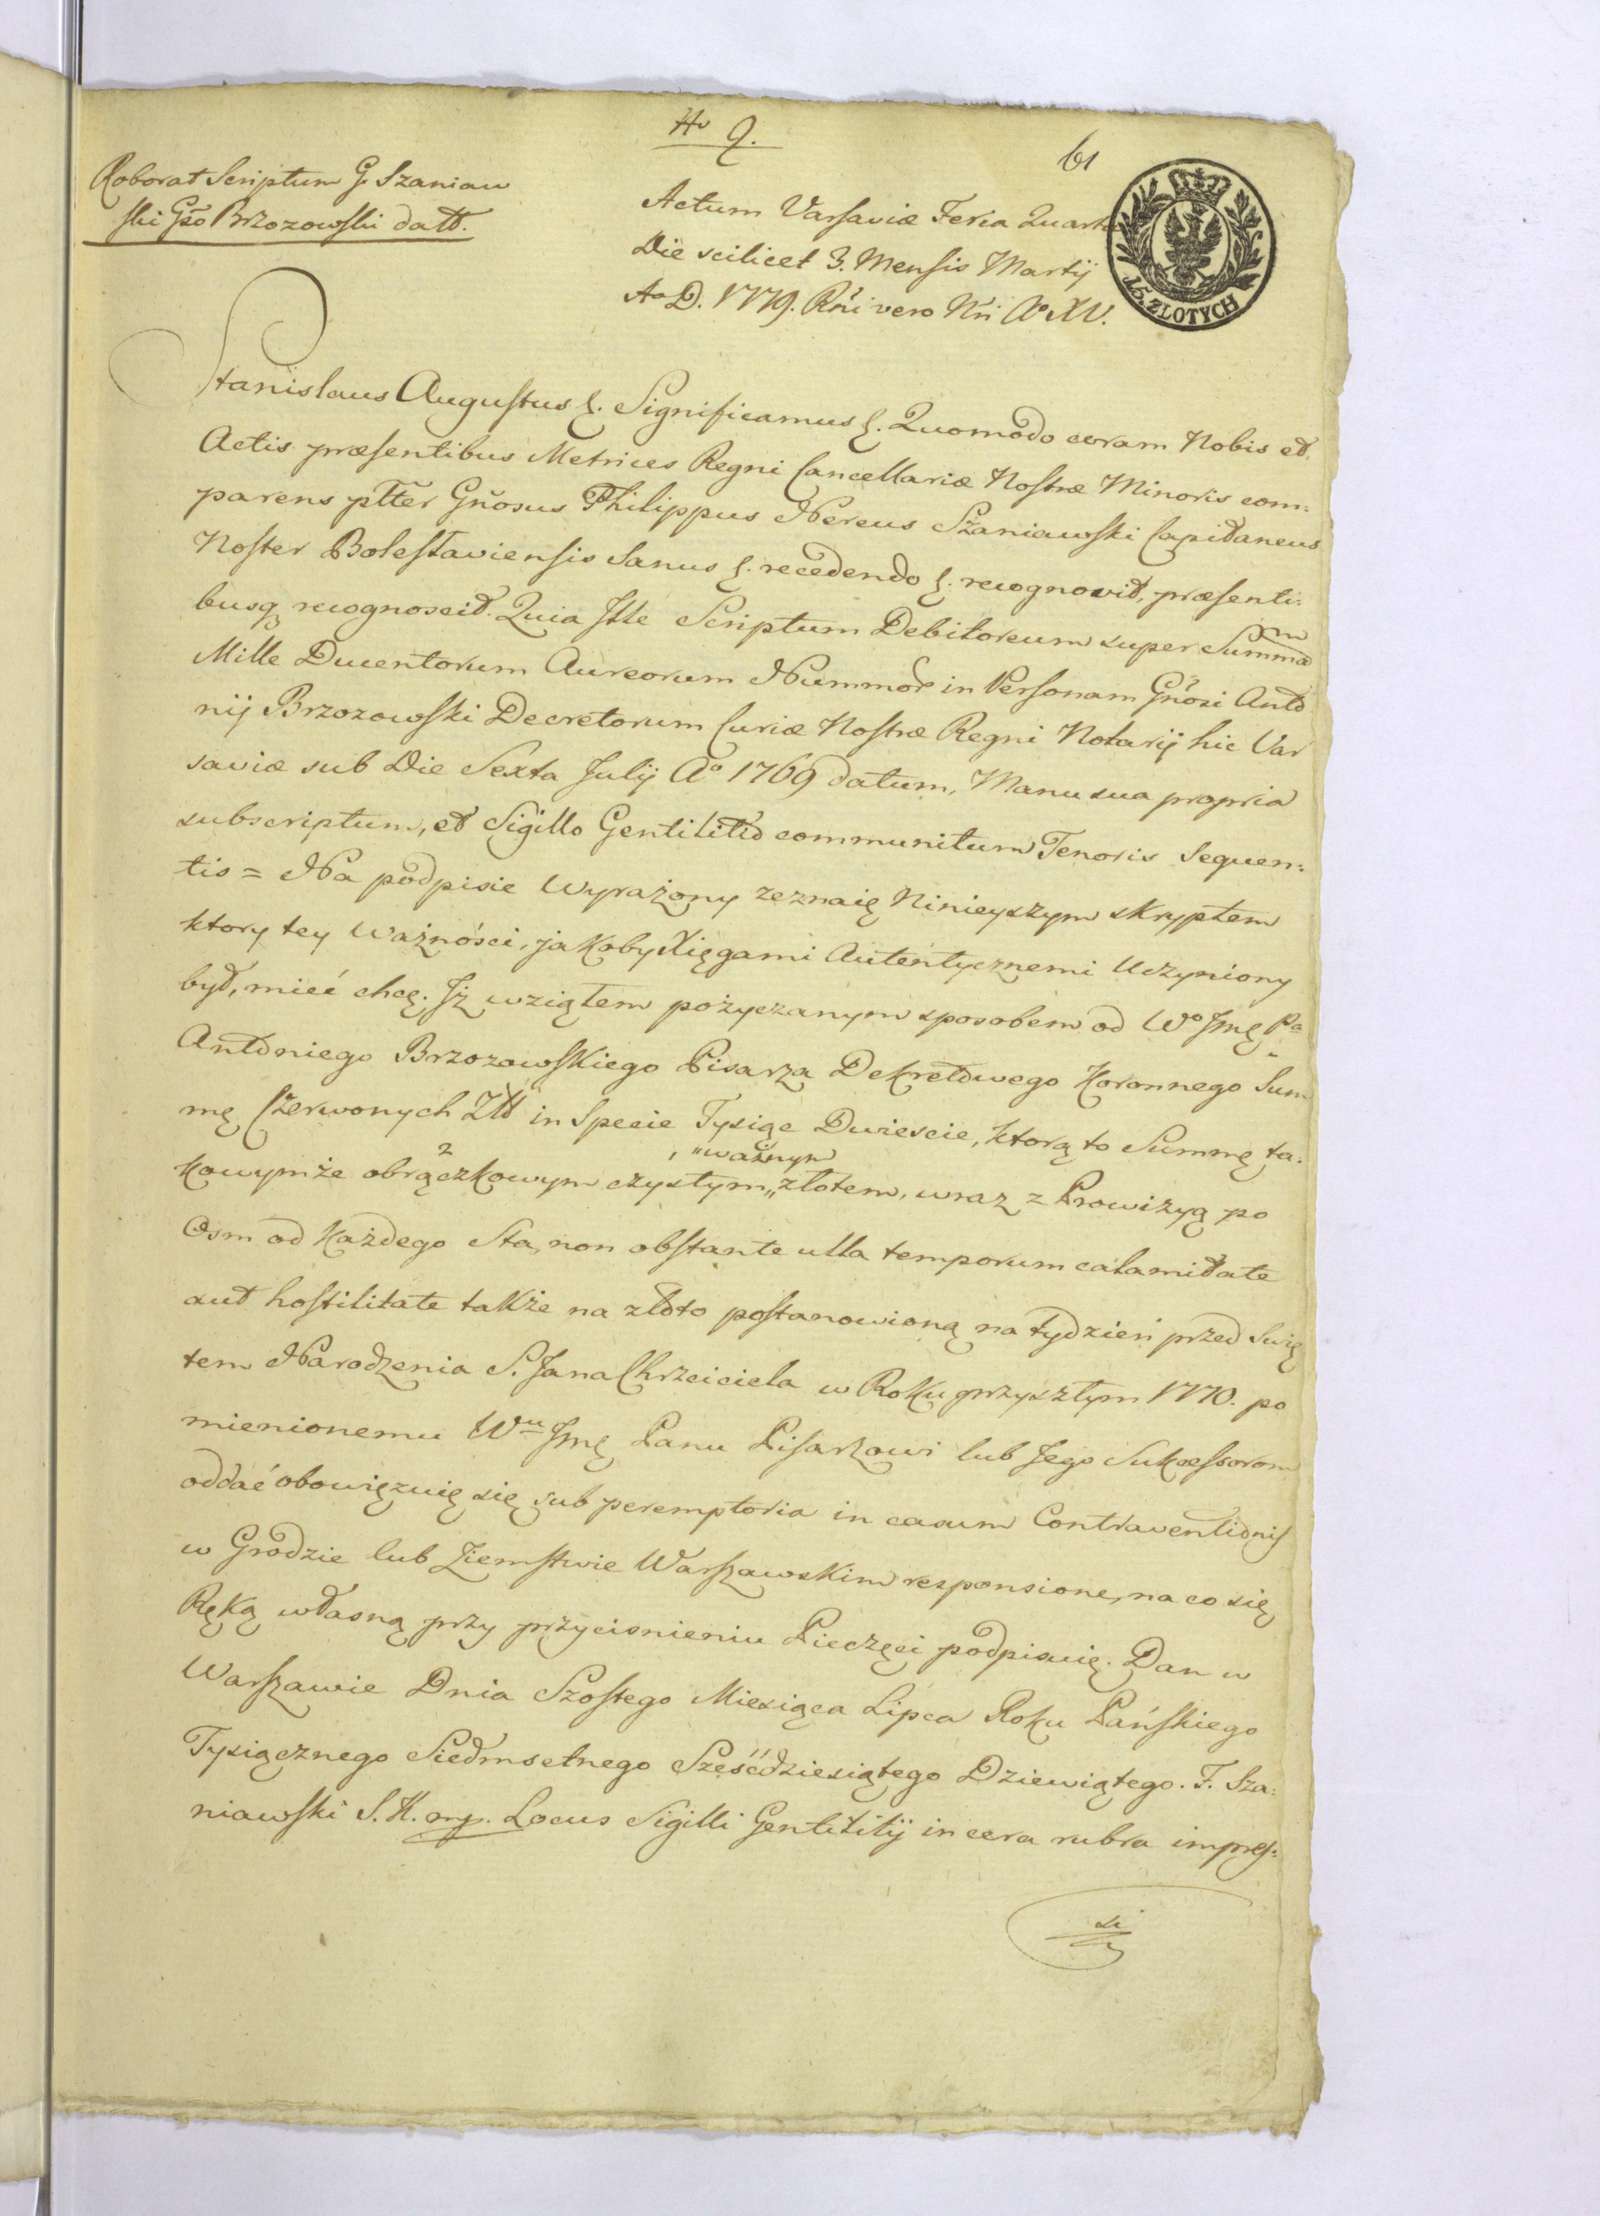 No 9.
61
Roborat Scriptum G. Szaniaw
ski Gso Brzozowski datt.
Actum Varsaviæ Feria Quarta
Die scilicet 3. Mensis Martij
Ao D. 1779. Rñi vero Nri Ao XV.
15. ZŁOTYCH
Stanislaus Augustus &. Significamus &. Quomodo coram Nobis et
Actis præsentibus Metrices Regni Cancellariæ Nostræ Minoris com:
parens ptter Gñosus Philippus Nereus Szaniawski Capitaneus
Noster Bolestaviensis Sanus &. recedendo &. recognovit, præsenti:
busq recognoscit. Quia Ille Scriptum Debitoreum super Summam
Mille Ducentorum Aureorum Nummor in Personam Gñosi Anto
nij Brzozowski Decretorum Curiæ Nostræ Regni Notarij hic Var
saviæ sub Die Sexta Julij Ao 1769 datum, Manu sua propria
subscriptum, et Sigillo Gentilitio communitum Tenoris Sequen:
tis = Na podpisie Wyrażony zeznaię Ninieyszym skryptem
ktory tey Ważności, jakoby Xięgami Autentycznemi Uczyniony
był, mieć chcę. Iż wziąłem pożyczanym sposobem od Wo Jmę Pa
Antoniego Brzozowskiego Pisarza Dekretowego Koronnego Sum
mę Czerwonych Złł in Specie Tysiąc Dwieście, ktorą to Summę ta:
kowymże obrączkowym czystym „ważnym„ złotem, wraz z Prowizyą po
Osm od każdego Sta, non obstante ulla temporum calamitate
aut hostilitate także na złoto postanowioną na tydzień przed Swię
tem Narodzenia S. Jana Chrzciciela w Roku przyszłym 1770. po
mienionemu Wu Jmę Panu Pisarzowi lub Jego Sukcessorom
oddać obowięzuię się sub peremptoria in casum Contraventionis
w Grodzie lub Ziemstwie Warszawskim responsione, na co się
Ręką własną przy przycisnieniu Pieczęci podpisuię. Dan w
Warszawie Dnia Szostego Miesiąca Lipca Roku Pańskiego
Tysiącznego Siedmsetnego Sześćdziesiątego Dziewiątego. F. Sza:
niawski S. K. mp. Locus Sigilli Gentilitij in cera rubra impres:
si